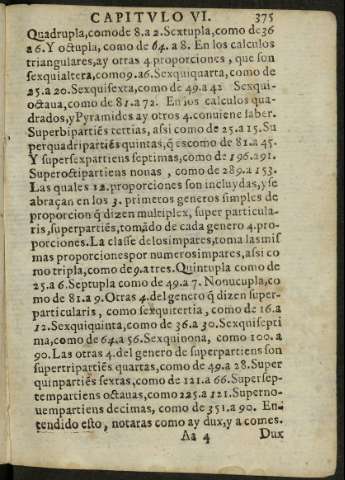 CAPITVLO VI. 375
Quadrupla, comode 8. a 2. Sextupla, como de 36
a 6. Y octupla, como de 64. a 8. En los calculos
triangulares, ay otras 4. proporciones, que son
sexquialtera, como 9. a 6. Sexquiquarta, como de
25. a 20. Sexquisexta, como de 49. a 42 Sexqui-
octaua, como de 81. a 72. En los calculos qua-
drados, y Pyramides ay otros 4. conuiene saber.
Superbipartiẽs tertias, assi como de 25. a 15. Su
perquadripartiẽs quintas, q̃ es como de 81. a 45.
Y supersexpartiens septimas, como de 196. a 91.
Superoctipartiens nonas, como de 289. a 153.
Las quales 12. proporciones son incluydas, y se
abraçan en los 3. primeros generos simples de
proporcion q̃ dizen multiplex, super particula-
ris, superpartiẽs, tomãdo de cada genero 4. pro-
porciones. La classe de los impares, toma las mis
mas proporciones por numeros impares, assi co
mo tripla, como de 9. a tres. Quintupla como de
25. a 6. Septupla como de 49. a 7. Nonucupla, co-
mo de 81. a 9. Otras 4. del genero q̃ dizen super-
particularis, como sexquitertia, como de 16. a
12. Sexquiquinta, como de 36. a 30. Sexqnisepti
ma, como de 64. a 56. Sexquinona, como 100. a
90. Las otras 4. del genero de superpartiens son
supertripartiẽs quartas, como de 49. a 28. Super
quinpartiẽs sextas, como de 121. a 66. Supersep-
tempartiens octauas, como 225. a 121. Superno-
uempartiens decimas, como de 351. a 90. En-
tendido esto, notaras como ay dux, y a comes.
Aa 4 Dux